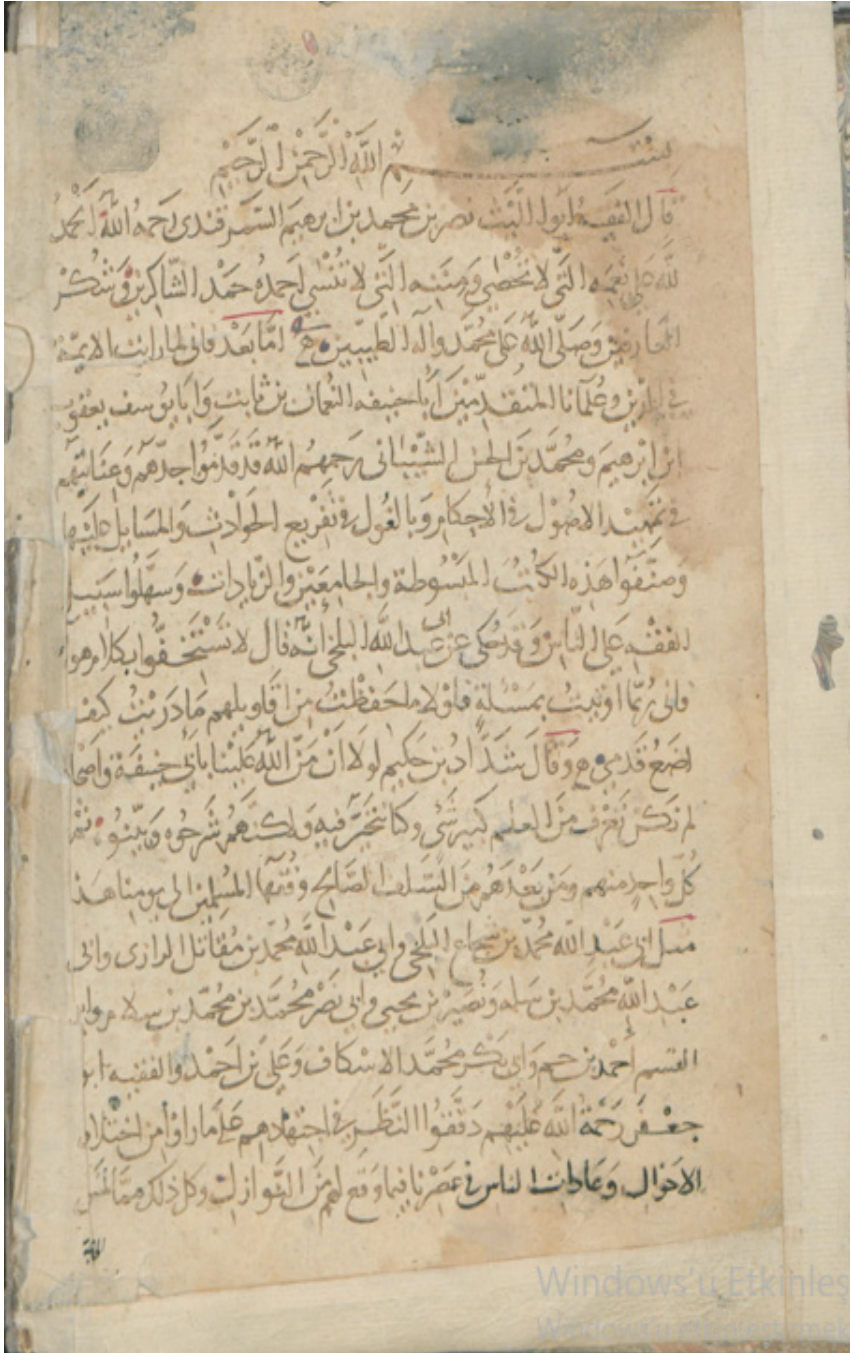 بسم الله الرحمن الرحيم
قال الفقيه ابو الليث نصر بن محمد بن ابرهيم السمرقندى رحمه الله الحمد
لله على نعمه التى لا تحصى ومننه التى لا تنسى احمده حمد الشاكرين وشكر
العارفين وصلى الله على محمد وآله الطيبين اما بعد فانى لما رايت الايمة
فى الدين وعلمآنا المتقدمين ابا حنيفه النعمان بن ثابت وابا يوسف يعقوب
ابن ابرهيم ومحمد بن الحسن الشيبانى رحمهم الله قد قدموا جدهم وعنايتهم
فى تمهيد الاصول فى الاحكام وبالغوا فى تفريع الحوادث والمسايل عليها
وصنفوا هذه الكتب المبسوطة والجامعين والزيادات وسهلوا سبيل
الفقه على الناس وقد حكى عن ابى عبد الله البلخى انه قال لا تستخفوا بكلام هولا
فانى ربما اوتيت بمسئلة فلولا ما حفظت من اقاويلهم ما دريت كيف
اضع قدمى وقال شداد بن حكيم لولا ان من الله علينا بابى حنيفة واصحا
لم نكن نعرف من العلم كبير شى وكنا نتحير فيه ولكنهم شرحوه وبينوه ثم
كل واحد منهم ومن بعدهم من السلف الصالح وفقهآ المسلمين الى يومنا هذا
مثل ابى عبد الله محمد بن شجاع البلخى وابى عبد الله محمد بن مقاتل الرازى وابى
عبد الله محمد بن سلمه ونصير بن يحيى وابى نصر محمد بن محمد بن سلام وابى
القسم احمد بن حم وابى بكر محمد الاسكاف وعلى بن احمد والفقيه ابو
جعفر رحمة الله عليهم دققوا النظر فى اجتهادهم على ما راوا من اختلاف
الاحوال وعادات الناس فى عصرنا فيما وقع لهم من النوازل وكل ذلك مما
Windows'u Etkinleş